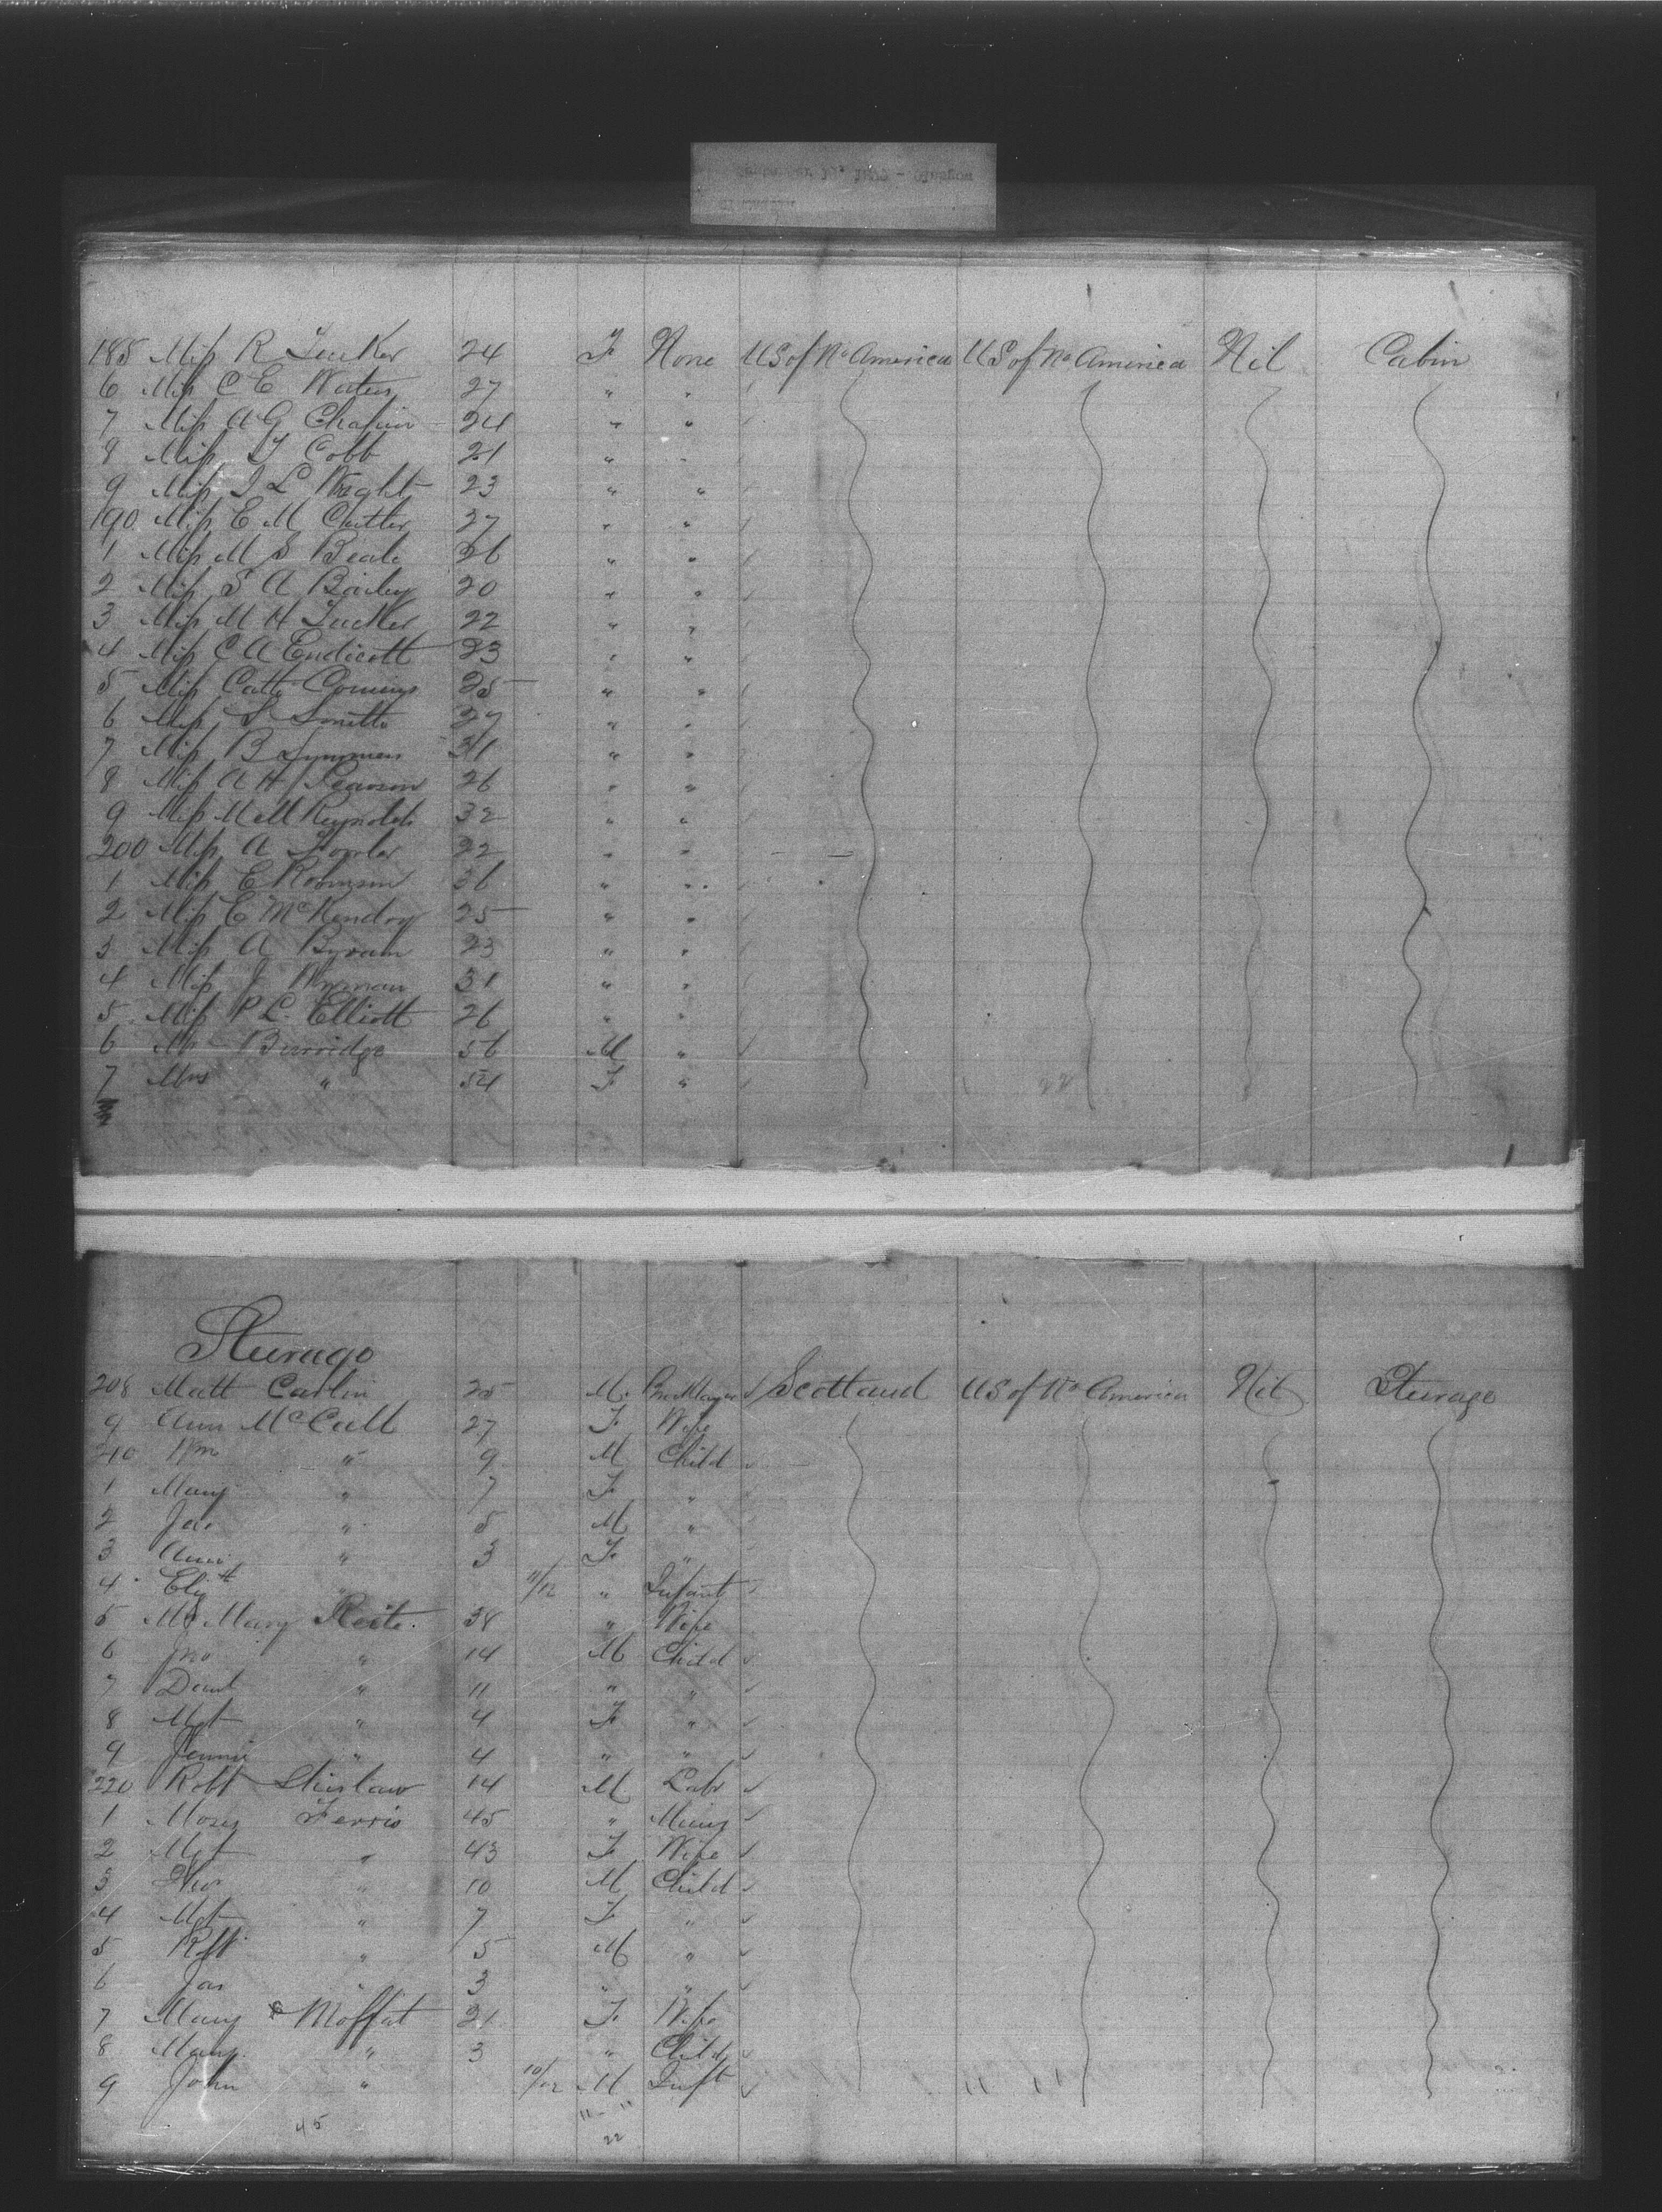 185 Miss R Tucker 24 F None US of No America US of No America Nil Cabin
6 Miss C E Waters 27 " "
7 Miss A G Chapin 24 " "
8 Miss Cobb 21 " "
9 Miss I L Wright 23 " "
190 Miss E M Cutler 27 " "
1 Miss M S Beale 26 " "
2 Miss S A Bailey 20 " "
3 Miss M H Tucker 22 " "
4 Miss C A Endicott 23 " "
5 Miss Cath 25 " "
6 Miss S Smith 27 " "
7 Miss B 31 " "
8 Miss A H Pearson 26 " "
9 Miss M Reynolds 32 " "
200 Miss A 22 " "
1 Miss E Robinson 36 " "
2 Miss E McKendry 25 " "
3 Miss A Byram 23 " "
4 Miss J Wyman 31 " "
5 Miss P L Elliott 26 " "
6 Mr Burridge 56 M "
7 Mrs " 54 F "
22
Steerage
208 Matt Carlin 25 M. Scotland US of No America Nil Steerage
9 Ann McCall 27 F Wife
210 Wm " 9 M Child
1 Mary " 7 F "
2 " 5 M "
3 Ann " 3 F "
4 Elizth " 11/12 " Infant
5 Mary 38 " Wife
6 Jno " 14 M Child
7 Danl " 11 " "
8 Mgt " 4 F "
9 Jennie " 4 " "
220 Robt Shirlaw 14 M Labr
1 Moses Ferris 45 "
2 Mgt " 43 F Wife
3 " 10 M Child
4 Mgt " 7 F "
5 Robt " 5 M "
6 Jas " 3 " "
7 Mary Moffat 21 F Wife
8 Mary " 3 " Child
9 John " 10/12 M Inft
45
22